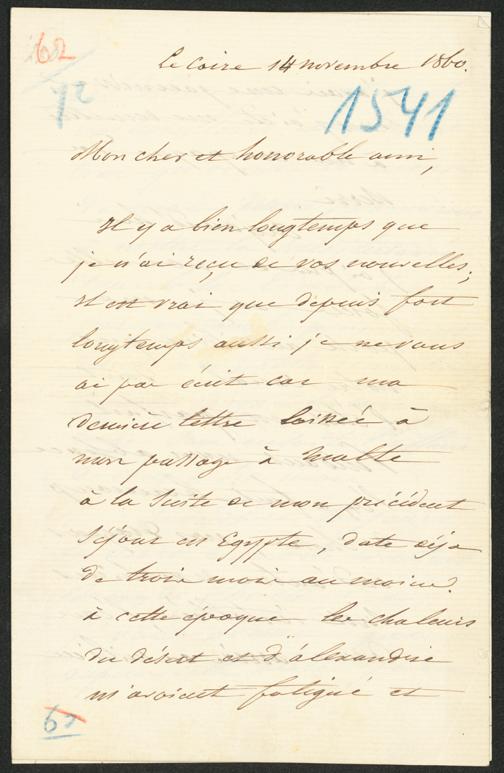 62
12
Le Caire 14 novembre 1860.
1541
Mon cher et honorable ami,
Il y a bien longtemps que
je n'ai reçu de vos nouvelles;
il est vrai que depuis fort
longtemps aussi je ne vous
ai pas écrit car ma
dernière lettre laissée à
mon passage à Malte
à la suite de mon précédent
séjour en Egypte, date déja
de trois mois au moins.
à cette époque les chaleurs
du désert et d'alexandrie
m'avoient fatigué et